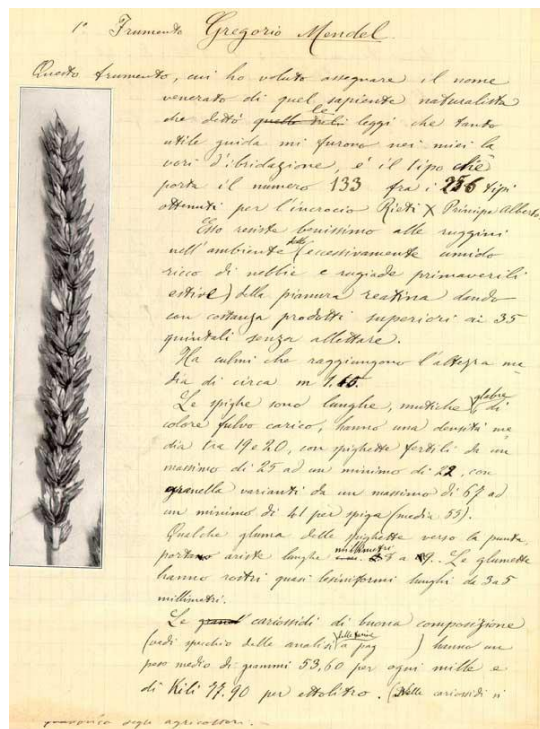 1° Frumento Gregorio Mendel.
Questo frumento, cui ho voluto assegnare il nome
venerato di quel sapiente naturalista
che dettò le leggi che tanto
utile guida mi furono nei miei la
vori d'ibridazione, é il tipo che
porta il numero 133 fra i 256 tipi
ottenuti per l'incrocio Rieti X Principe Alberto.
Esso resiste benissimo alle ruggini
nell'ambiente (eccessivamente umido
ricco di nebbie e rugiade primaverili
estive) della pianura reatina dando
con costanza prodotti superiori ai 35
quintali senza allettare.
Ha culmi che raggiungono l'altezza me
dia di circa m 1.45.
Le spighe sono lunghe, mutiche glabre di
colore fulvo carico, hanno una densità me
dia tra 19 e 20, con spighette fertili da un
massimo di 25 ad un minimo di 22, con
granella varianti da un massimo di 67 ad
un minimo di 41 per spiga (media 55).
Qualche gluma delle spighette verso la punta
portano ariste lunghe millimetri 8 a 9. Le glumette
hanno rostri quasi lesiniformi lunghi da 3 a 5
millimetri.
Le cariossidi di buona composizione
(vedi specchio delle analisi delle farine a pag ) hanno un
peso medio di grammi 53,60 per ogni mille e
di Kili 77.90 per ettolitro. (Delle cariossidi si
degli agricoltori. —